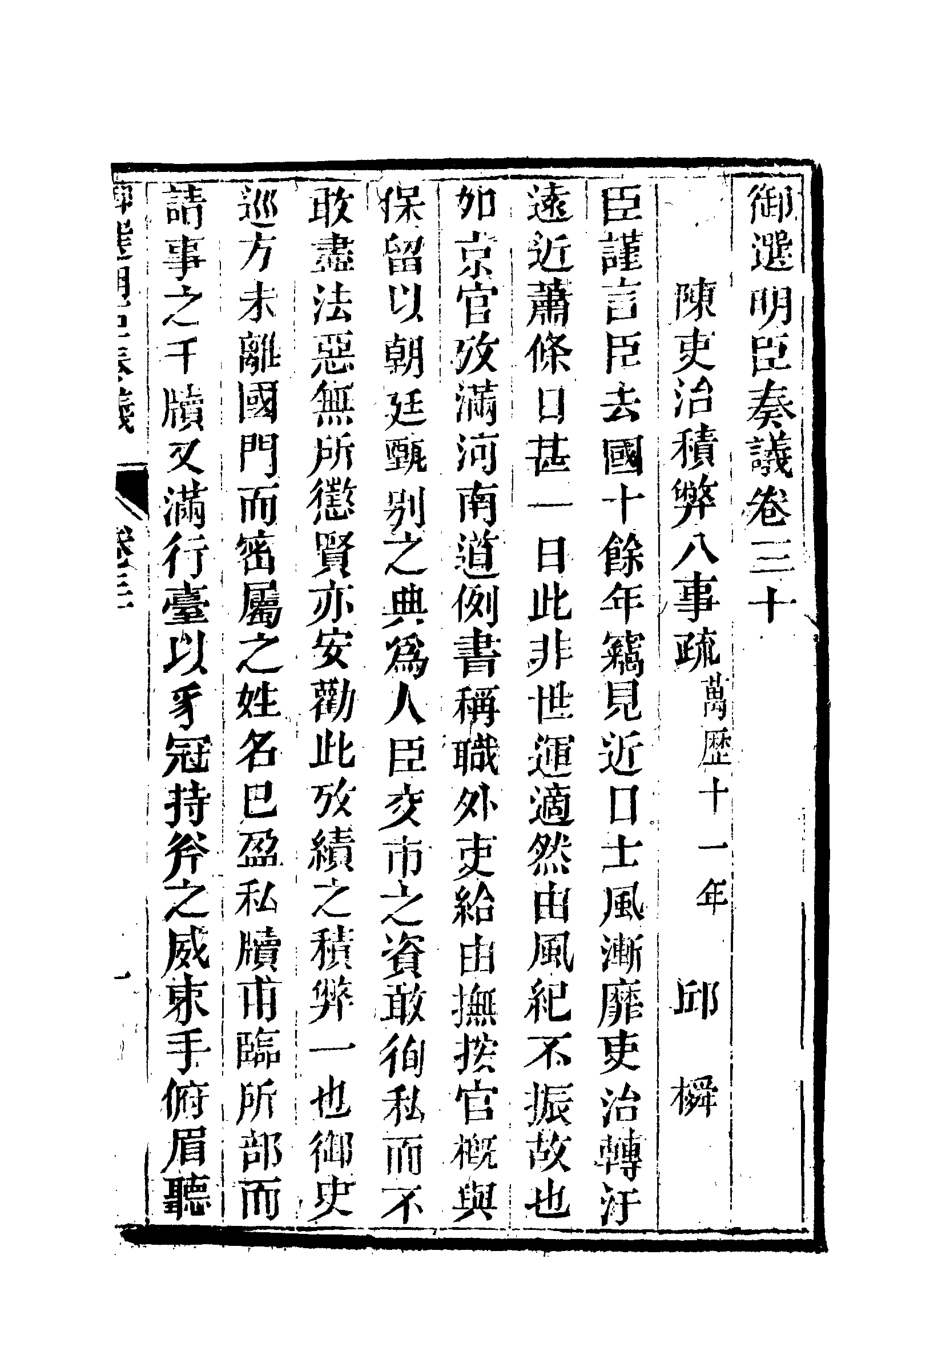 御選明臣奏議卷三十
陳吏治積弊八事疏萬歷十一年 邱橓
臣謹言臣去國十餘年竊見近日士風漸靡吏治轉汙
遠近蕭條日甚一日此非世運適然由風紀不振故也
如京官攷滿河南道例書稱職外吏給由撫按官槪與
保留以朝廷甄別之典爲人臣交市之資敢徇私而不
敢盡法惡無所懲賢亦安勸此攷績之積弊一也御史
巡方未離國門而密屬之姓名已盈私牘甫臨所部而
請事之干牘又滿行臺以豸冠持斧之威束手俯眉聽
御選明臣奏議 卷三十 一